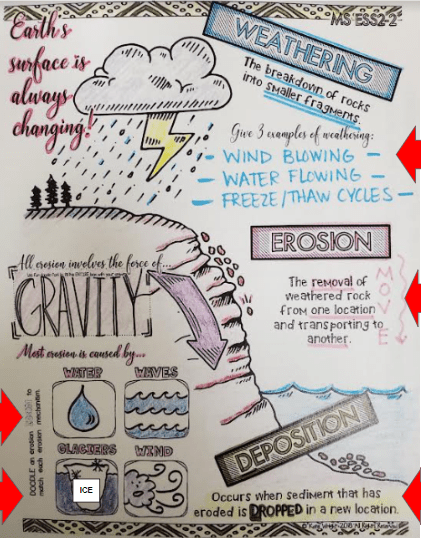 MS ESS2-2
Earth's
surface is
always
changing!
WEATHERING
The breakdown of rocks
into smaller fragments.
Give 3 examples of weathering:
- WIND BLOWING -
- WATER FLOWING -
- FREEZE/THAW CYCLES -
EROSION
The removal of
weathered rock
from one location
and transporting to
another.
MOVE
All erosion involves the force of...
GRAVITY
Most erosion is caused by...
WATER
WAVES
GLACIERS
WIND
DOODLE an erosion to
match each erosion mechanism.
ICE
DEPOSITION
Occurs when sediment that has
eroded is DROPPED in a new location.